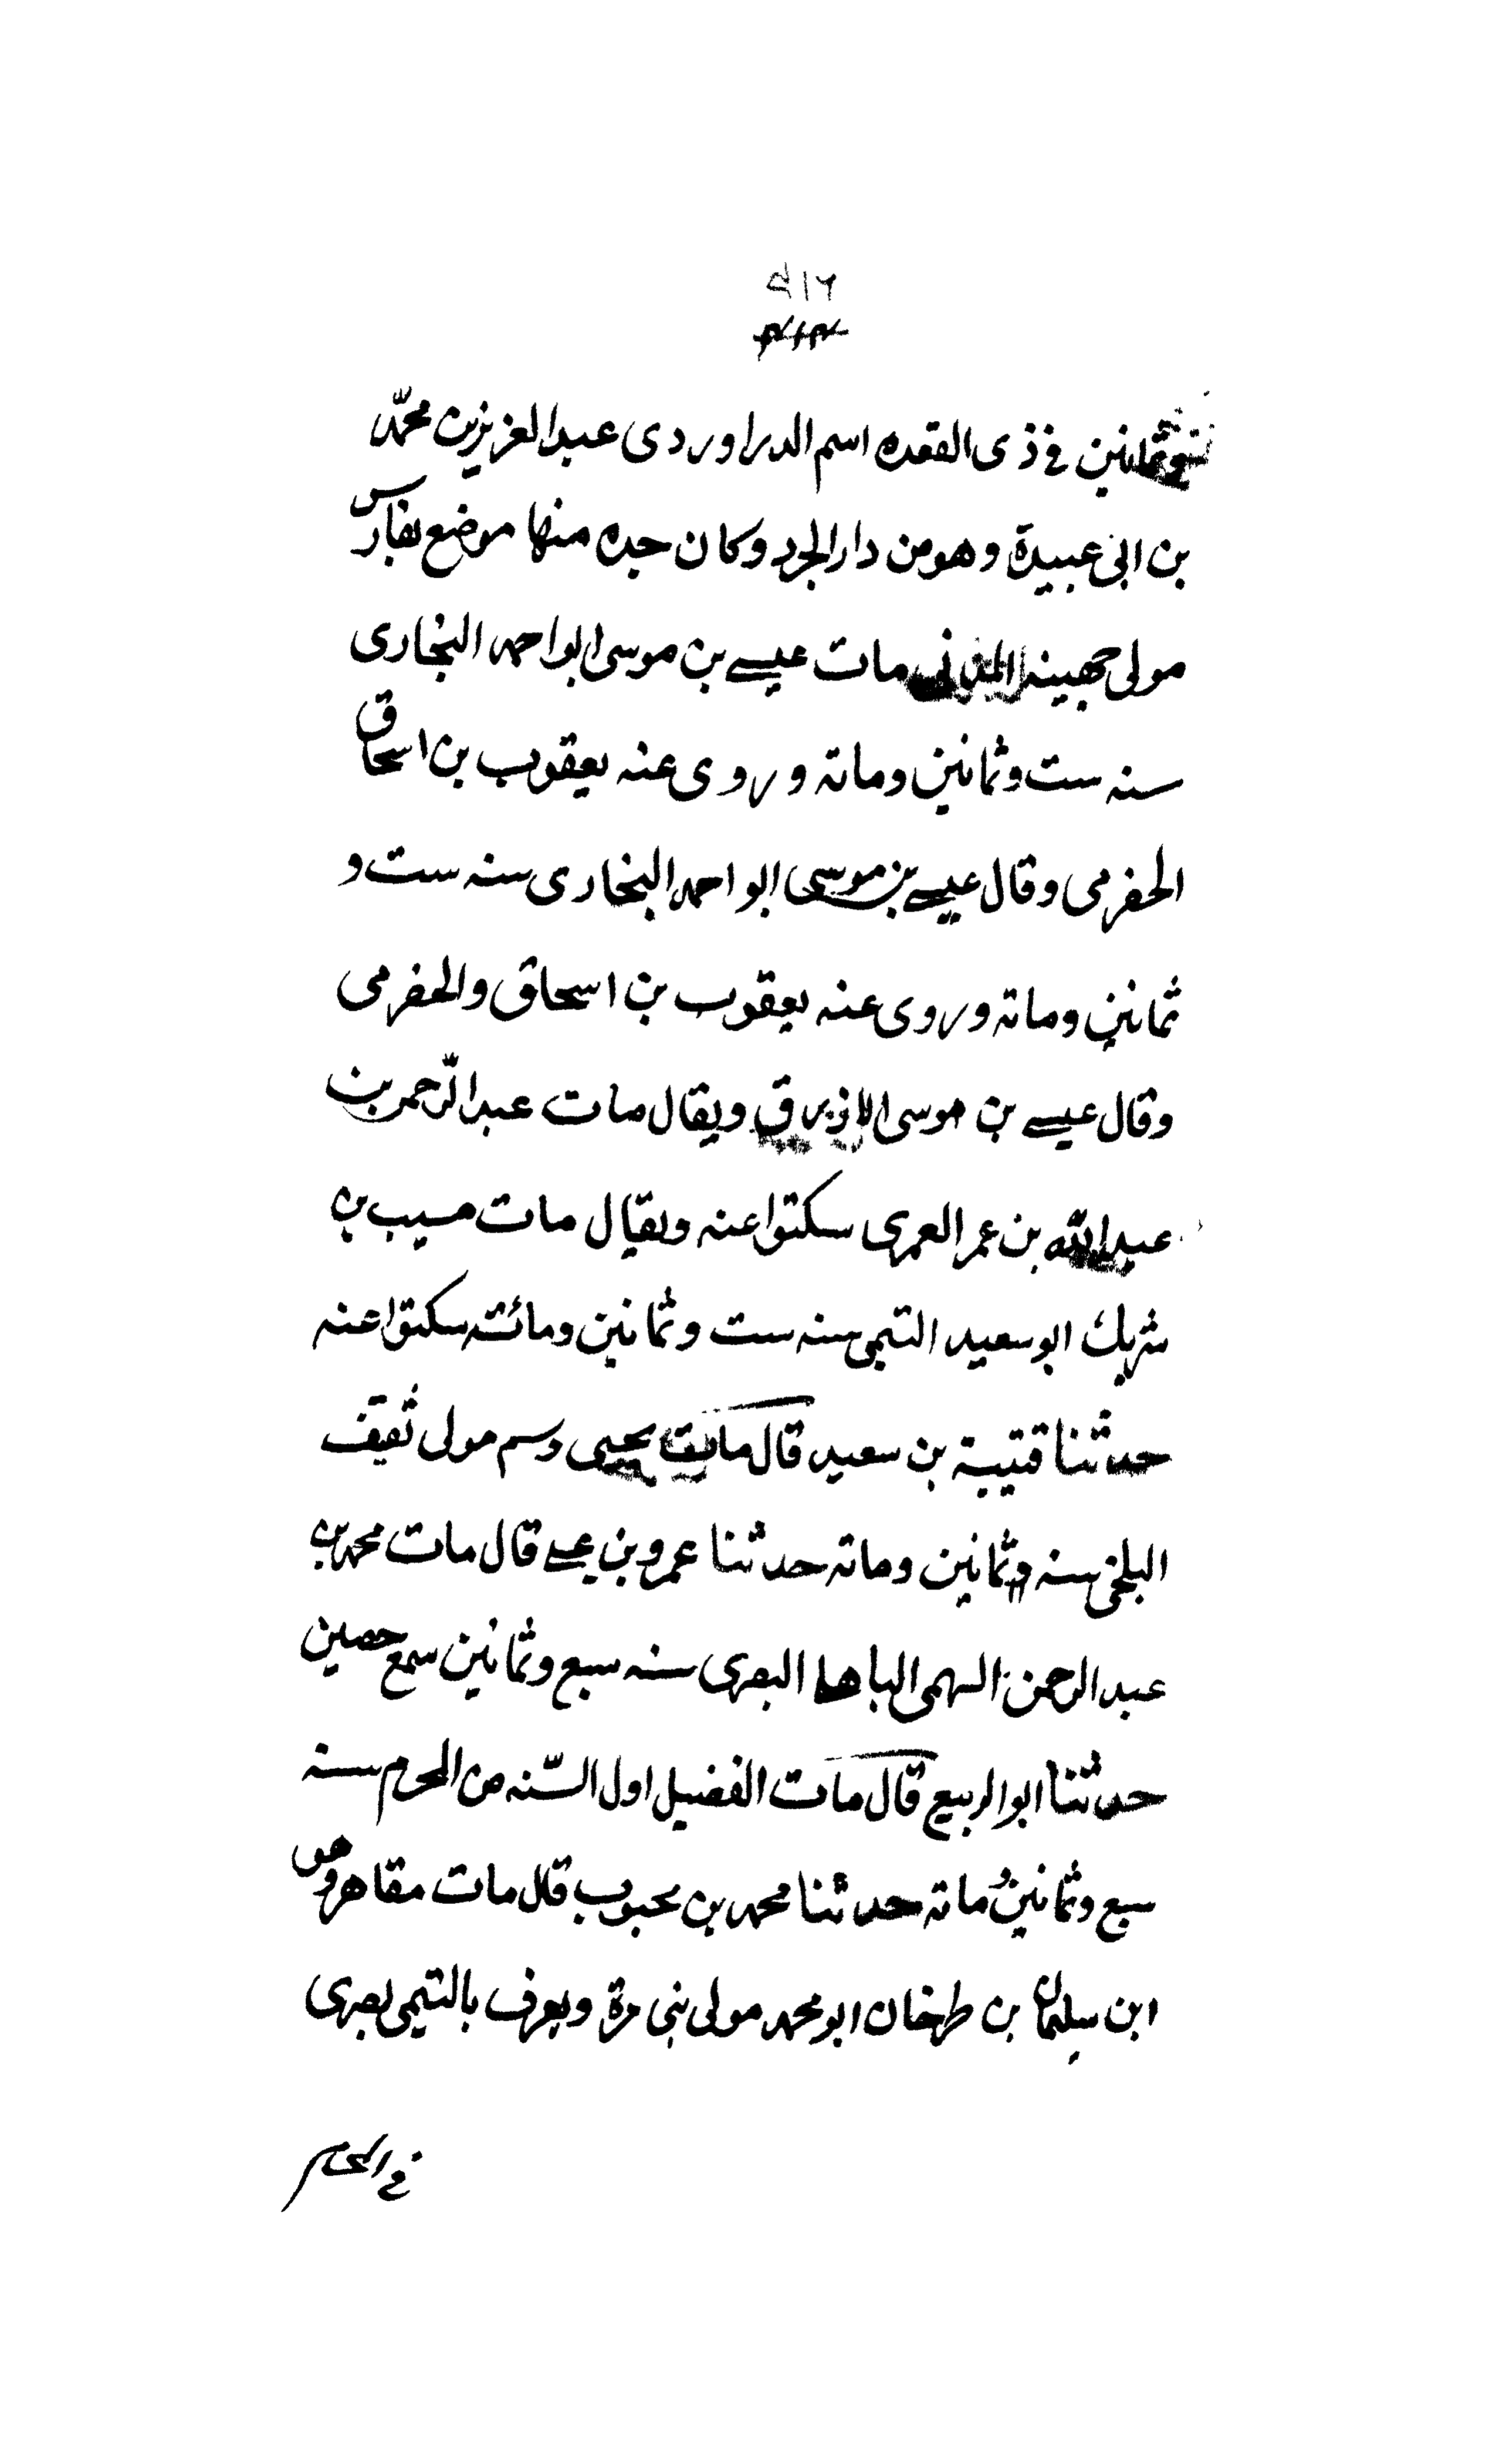 وثمانين في ذى القعده اسم الدراوردى عبدالعزيز بن محمّد
بن ابى عبيدة وهومن دارالجرد وكان جده منها موضع بفارس
مولى جهينه المدنى مات عيسے بن موسى ابواحمد البخارى
سنه ست وثمانين ومائة وروى عنه يعقوب بن اسحاق
الحضرمى وقال عيسے بن موسى ابو احمد البخارى سنه ست و
ثمانين ومائة وروى عنه يعقوب بن اسحاق والحضرمى
وقال عيسے بن موسى الازرق ويقال مات عبدالرّحمن بن
عبدالله بن عمر العمرى سكتوا عنه ويقال مات مسيب بن
شريك ابو سعيد التيمى سنه ست وثمانين ومائته سكتوا عنه
حدثنا قتيبة بن سعيد قال مات يحيى وسم مولى ثقيف
البلخى سنه وثمانين ومائة حدثنا عمرو بن عيسے قال مات محمد بن
عبدالرحمن السهمى الباهلى البصرى سنه سبع وثمانين سمع حصين
حدثنا ابوالربيع قال مات الفضيل اول السّنه من المحرم سنه
سبع وثمانين ومائة حدثنا محمد بن محبوب قال مات مقاهر وهو
ابن سليمان بن طرخان ابو محمد مولى بنى مرة ويعرف بالتيمى بصرى